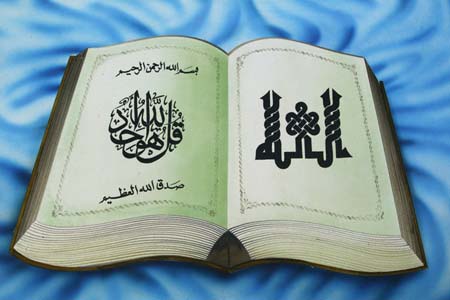 الله
بسم الله الرحمن الرحيم
قل هو الله أحد
صدق الله العظيم